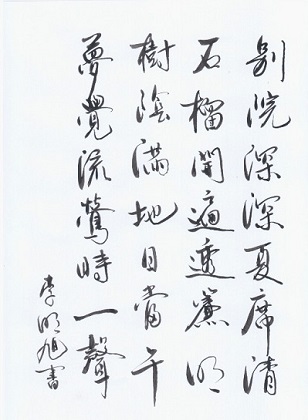 別院深深夏席清
石榴開遍透簾明
樹陰滿地日當午
夢覺流鶯時一聲
李明旭書